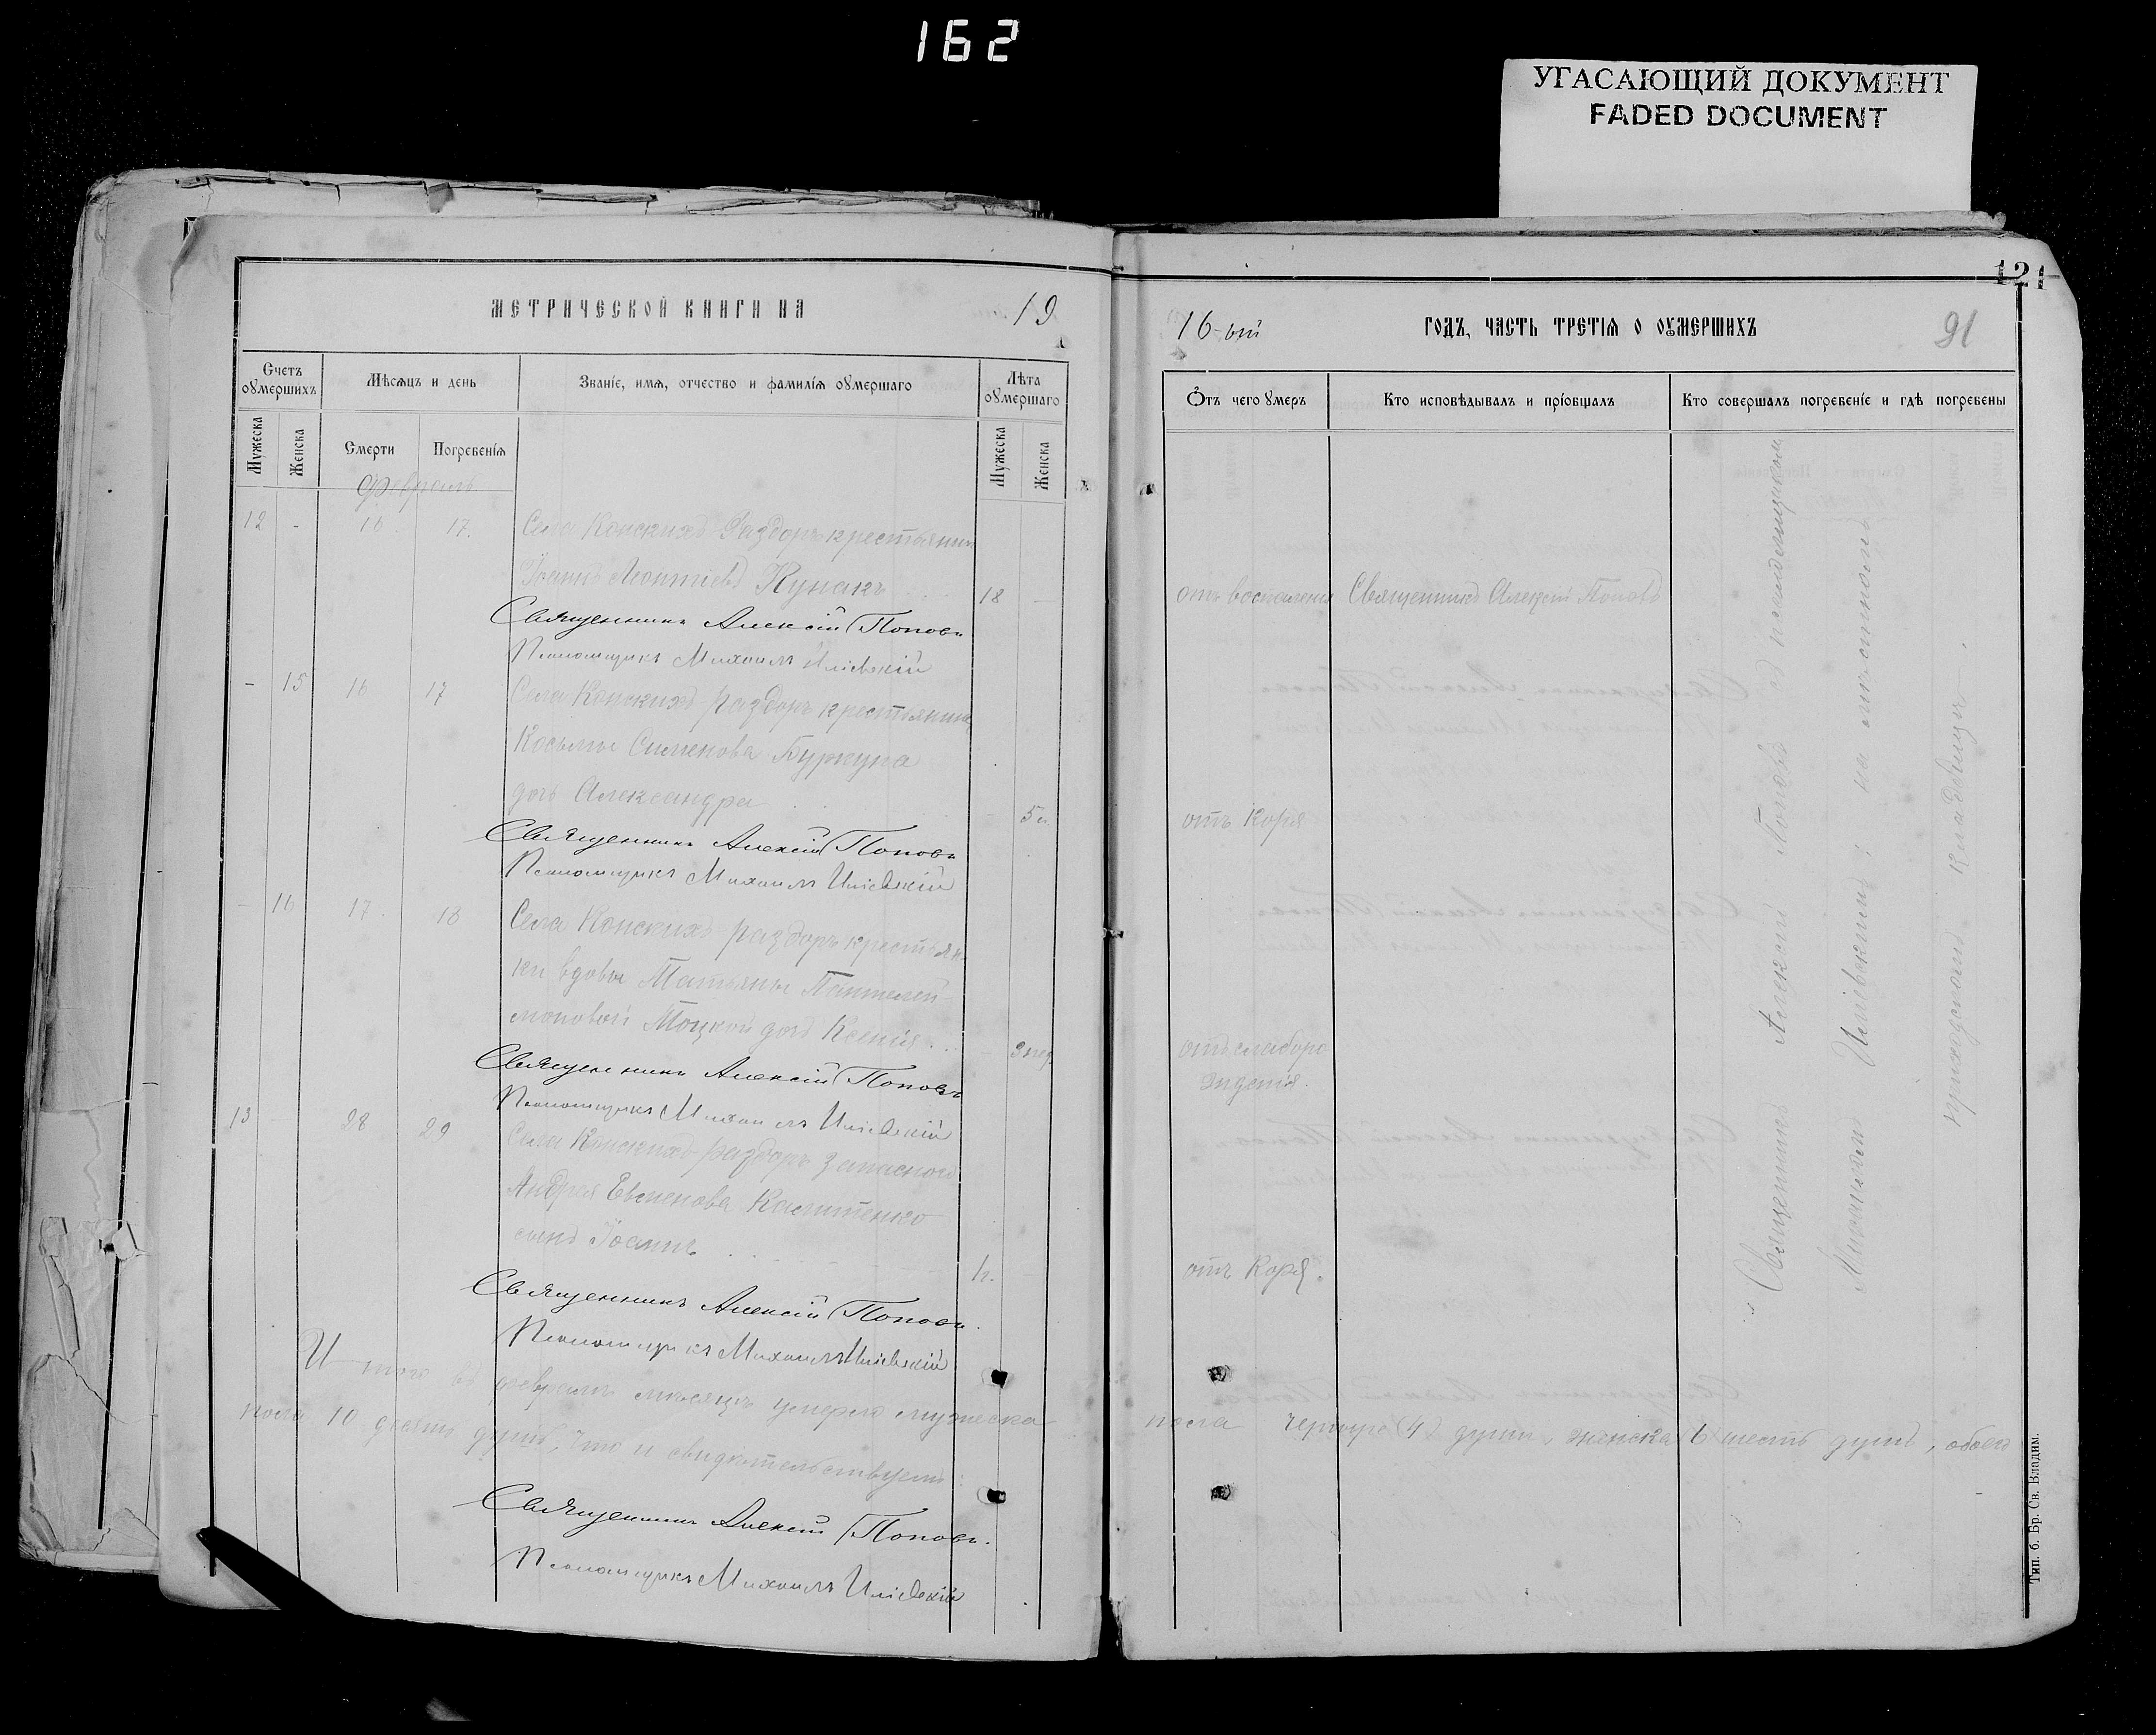 162
УГАСАЮЩИЙ ДОКУМЕНТ
FADED DOCUMENT
121
МЕТРИЧЕСКОЙ КНИГИ НА 19
16-ый ГОДЪ, ЧАСТЬ ТРЕТІЯ О ОУМЕРШИХЪ 91
Счетъ оумершихъ
Мѣсяцъ и день
Званіе, имя, отчество и фамилія оумершаго
Лѣта оумершаго
Отъ чего умеръ
Кто исповѣдывалъ и пріобщалъ
Кто совершалъ погребеніе и гдѣ погребены
Мужеска
Женска
Смерти
Погребенія
Мужеска
Женска
Февраль
12 - 16. 17. Села Конскихъ-Раздоръ крестьянинъ
Іоаннъ Леонтіевъ Кунакъ 18 -
отъ воспаленія Священникъ Алексій Поповъ
Священникъ Алексій Поповъ
Псаломщикъ Михаилъ Иліевскій
- 15 16 17 Села Конскихъ-раздоръ крестьянина
Косьмы Сименова Буркуна
дочь Александра 5 м.
отъ Коря
Священникъ Алексій Поповъ
Псаломщикъ Михаилъ Иліевскій
- 16 17. 18 Села Конскихъ-раздоръ крестьян-
ки вдовы Татьяны Пантелей-
моновой Моцкой дочь Ксенія. 3 нед.
отъ слаборо
жденія.
Священникъ Алексій Поповъ
Псаломщикъ Михаилъ Иліевскій
13 - 28 29 Села Конскихъ-раздоръ запасного
Андрея Евменова
сынъ Іоаннъ
отъ Коря.
Священникъ Алексій Поповъ.
Псаломщикъ Михаилъ Иліевскій
Священникъ Алексій Поповъ съ псаломщикомъ
Михаиломъ Иліевскимъ; на мѣстномъ
приходскомъ кладбищѣ.
И того въ февралѣ мѣсяцѣ умерло мужеска
пола четыре (4) души, женска (6) шесть душъ, обоего
пола 10 десять душъ, что и свидѣтельствуемъ:
Священникъ Алексій Поповъ.
Псаломщикъ Михаилъ Иліевскій
Тип. б. Бр. Св. Владим.